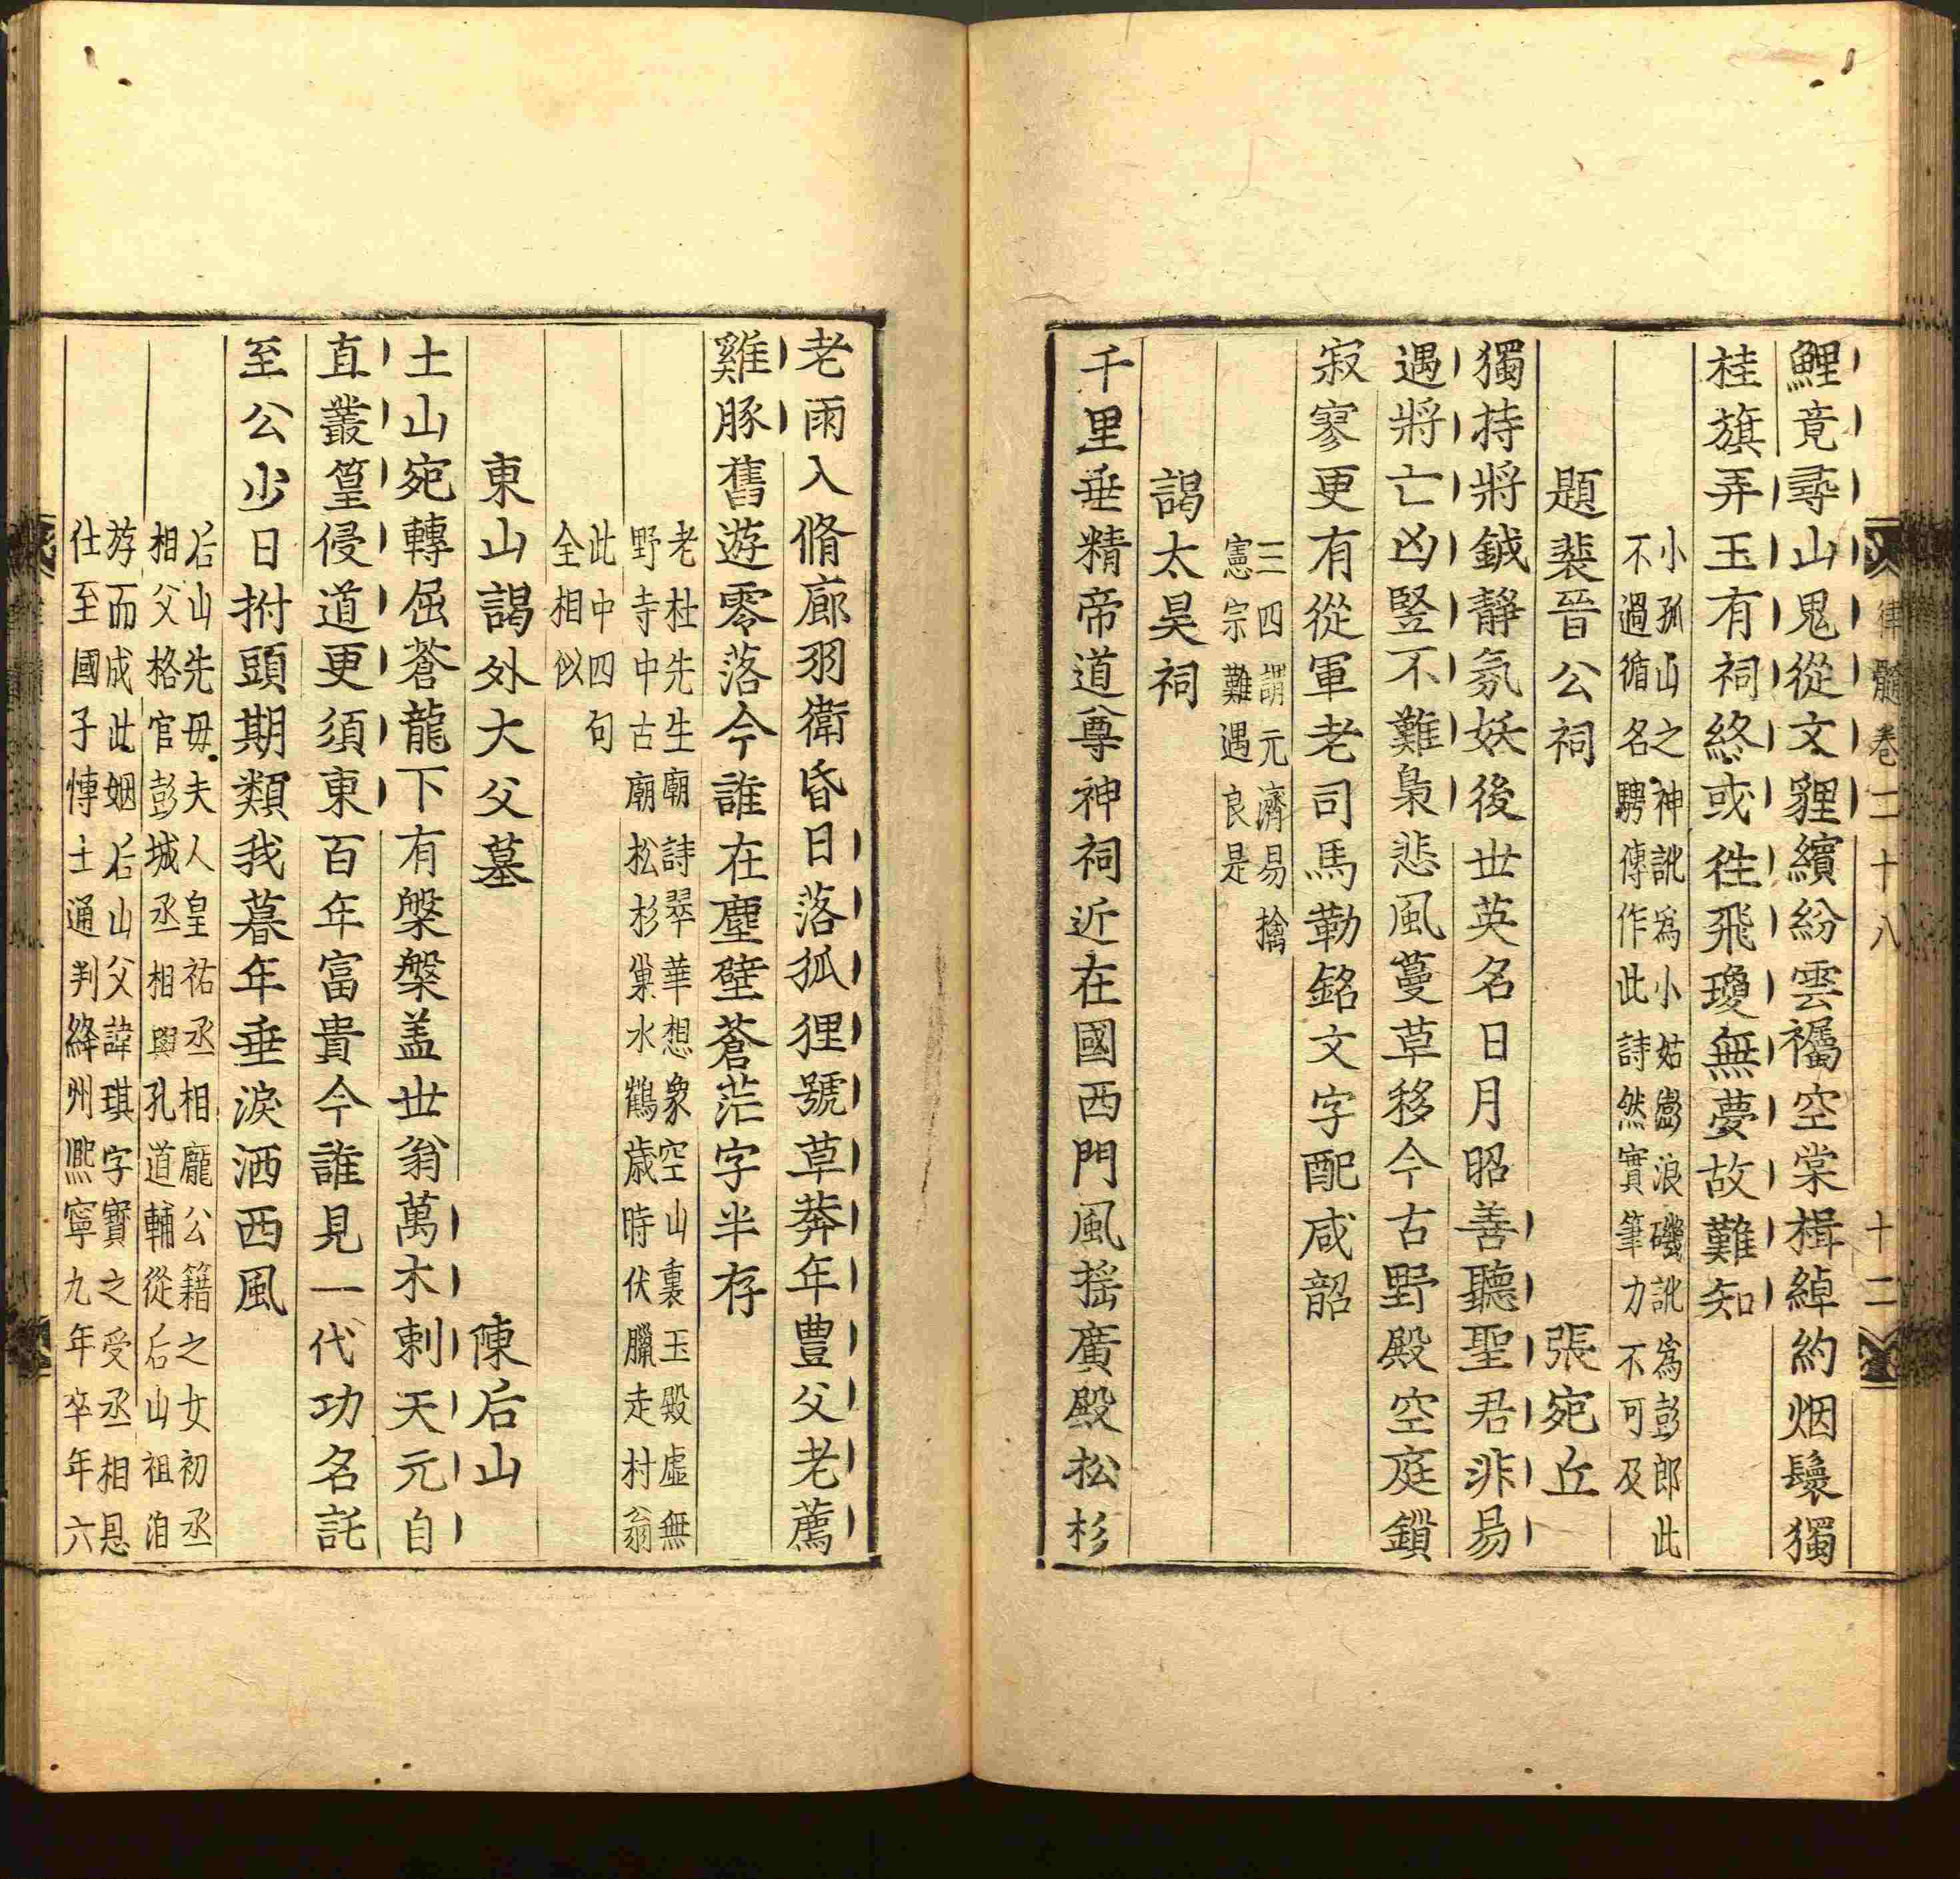 律髓卷二十八
十二
鯉竟尋山鬼從文貍繽紛雲襹空棠楫綽約烟鬟獨
桂旗弄玉有祠終或徃飛瓊無夢故難知
小孤山之神訛爲小姑澎浪磯訛爲彭郎此
不過循名騁傳作此詩然實筆力不可及
題裴晉公祠 張宛丘
獨持將鉞靜氛妖後世英名日月昭善聽聖君非易
遇將亡凶竪不難梟悲風蔓草移今古野殿空庭鎖
寂寥更有從軍老司馬勒銘文字配咸韶
三四謂元濟易擒
憲宗難遇良是
謁太昊祠
千里垂精帝道尊神祠近在國西門風摇廣殿松杉
老雨入脩廊羽衛昏日落狐狸號草莽年豊父老薦
雞豚舊遊零落今誰在塵壁蒼茫字半存
老杜先生廟詩翠華想象空山裏玉殿虛無
野寺中古廟松杉巢水鶴歲時伏臘走村翁
此中四句
全相似
東山謁外大父墓 陳后山
土山宛轉屈蒼龍下有槃槃盖世翁萬木刺天元自
直叢篁侵道更須東百年富貴今誰見一代功名託
至公少日拊頭期類我暮年垂淚洒西風
后山先毋夫人皇祐丞相龐公籍之女初丞
相父格官彭城丞相與孔道輔從后山祖洎
游而成此姻后山父諱琪字寶之受丞相恩
仕至國子博士通判絳州熈寧九年卒年六